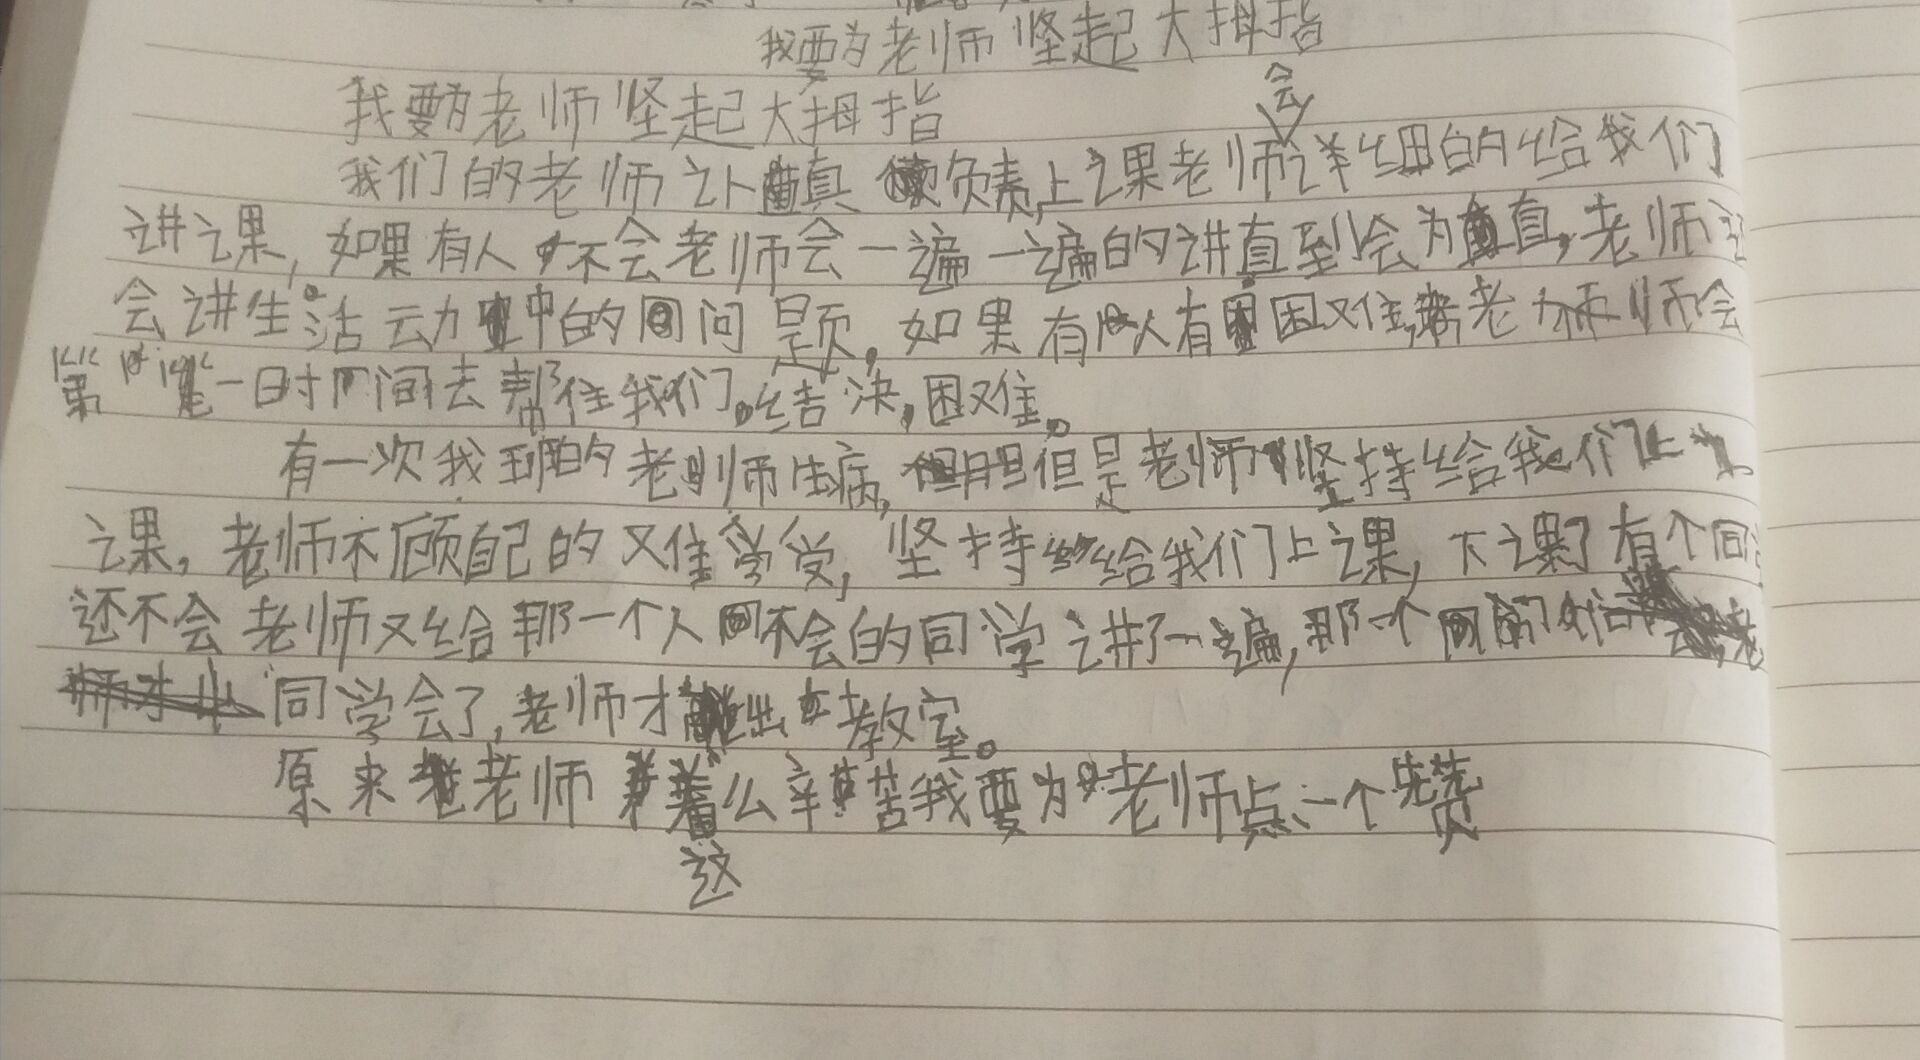 我要为老师坚起大拇指
我要为老师坚起大拇指
我们的老师认真负责,上课老师会详细的给我们
讲课,如果有人不会老师会一遍一遍的讲直到会为直,老师还
会讲生活云力中的问题,如果有人有困难,老师会
第一时间去帮住我们。结决,困难。
有一次我班的老师生病,但是老师坚持给我们上
课,老师不顾自己的难受,坚持给我们上课,下课了有个同
还不会老师又给那一个人不会的同学讲了一遍,那一个
同学会了,老师才出教室。
原来老师这么辛苦我要为老师点一个赞